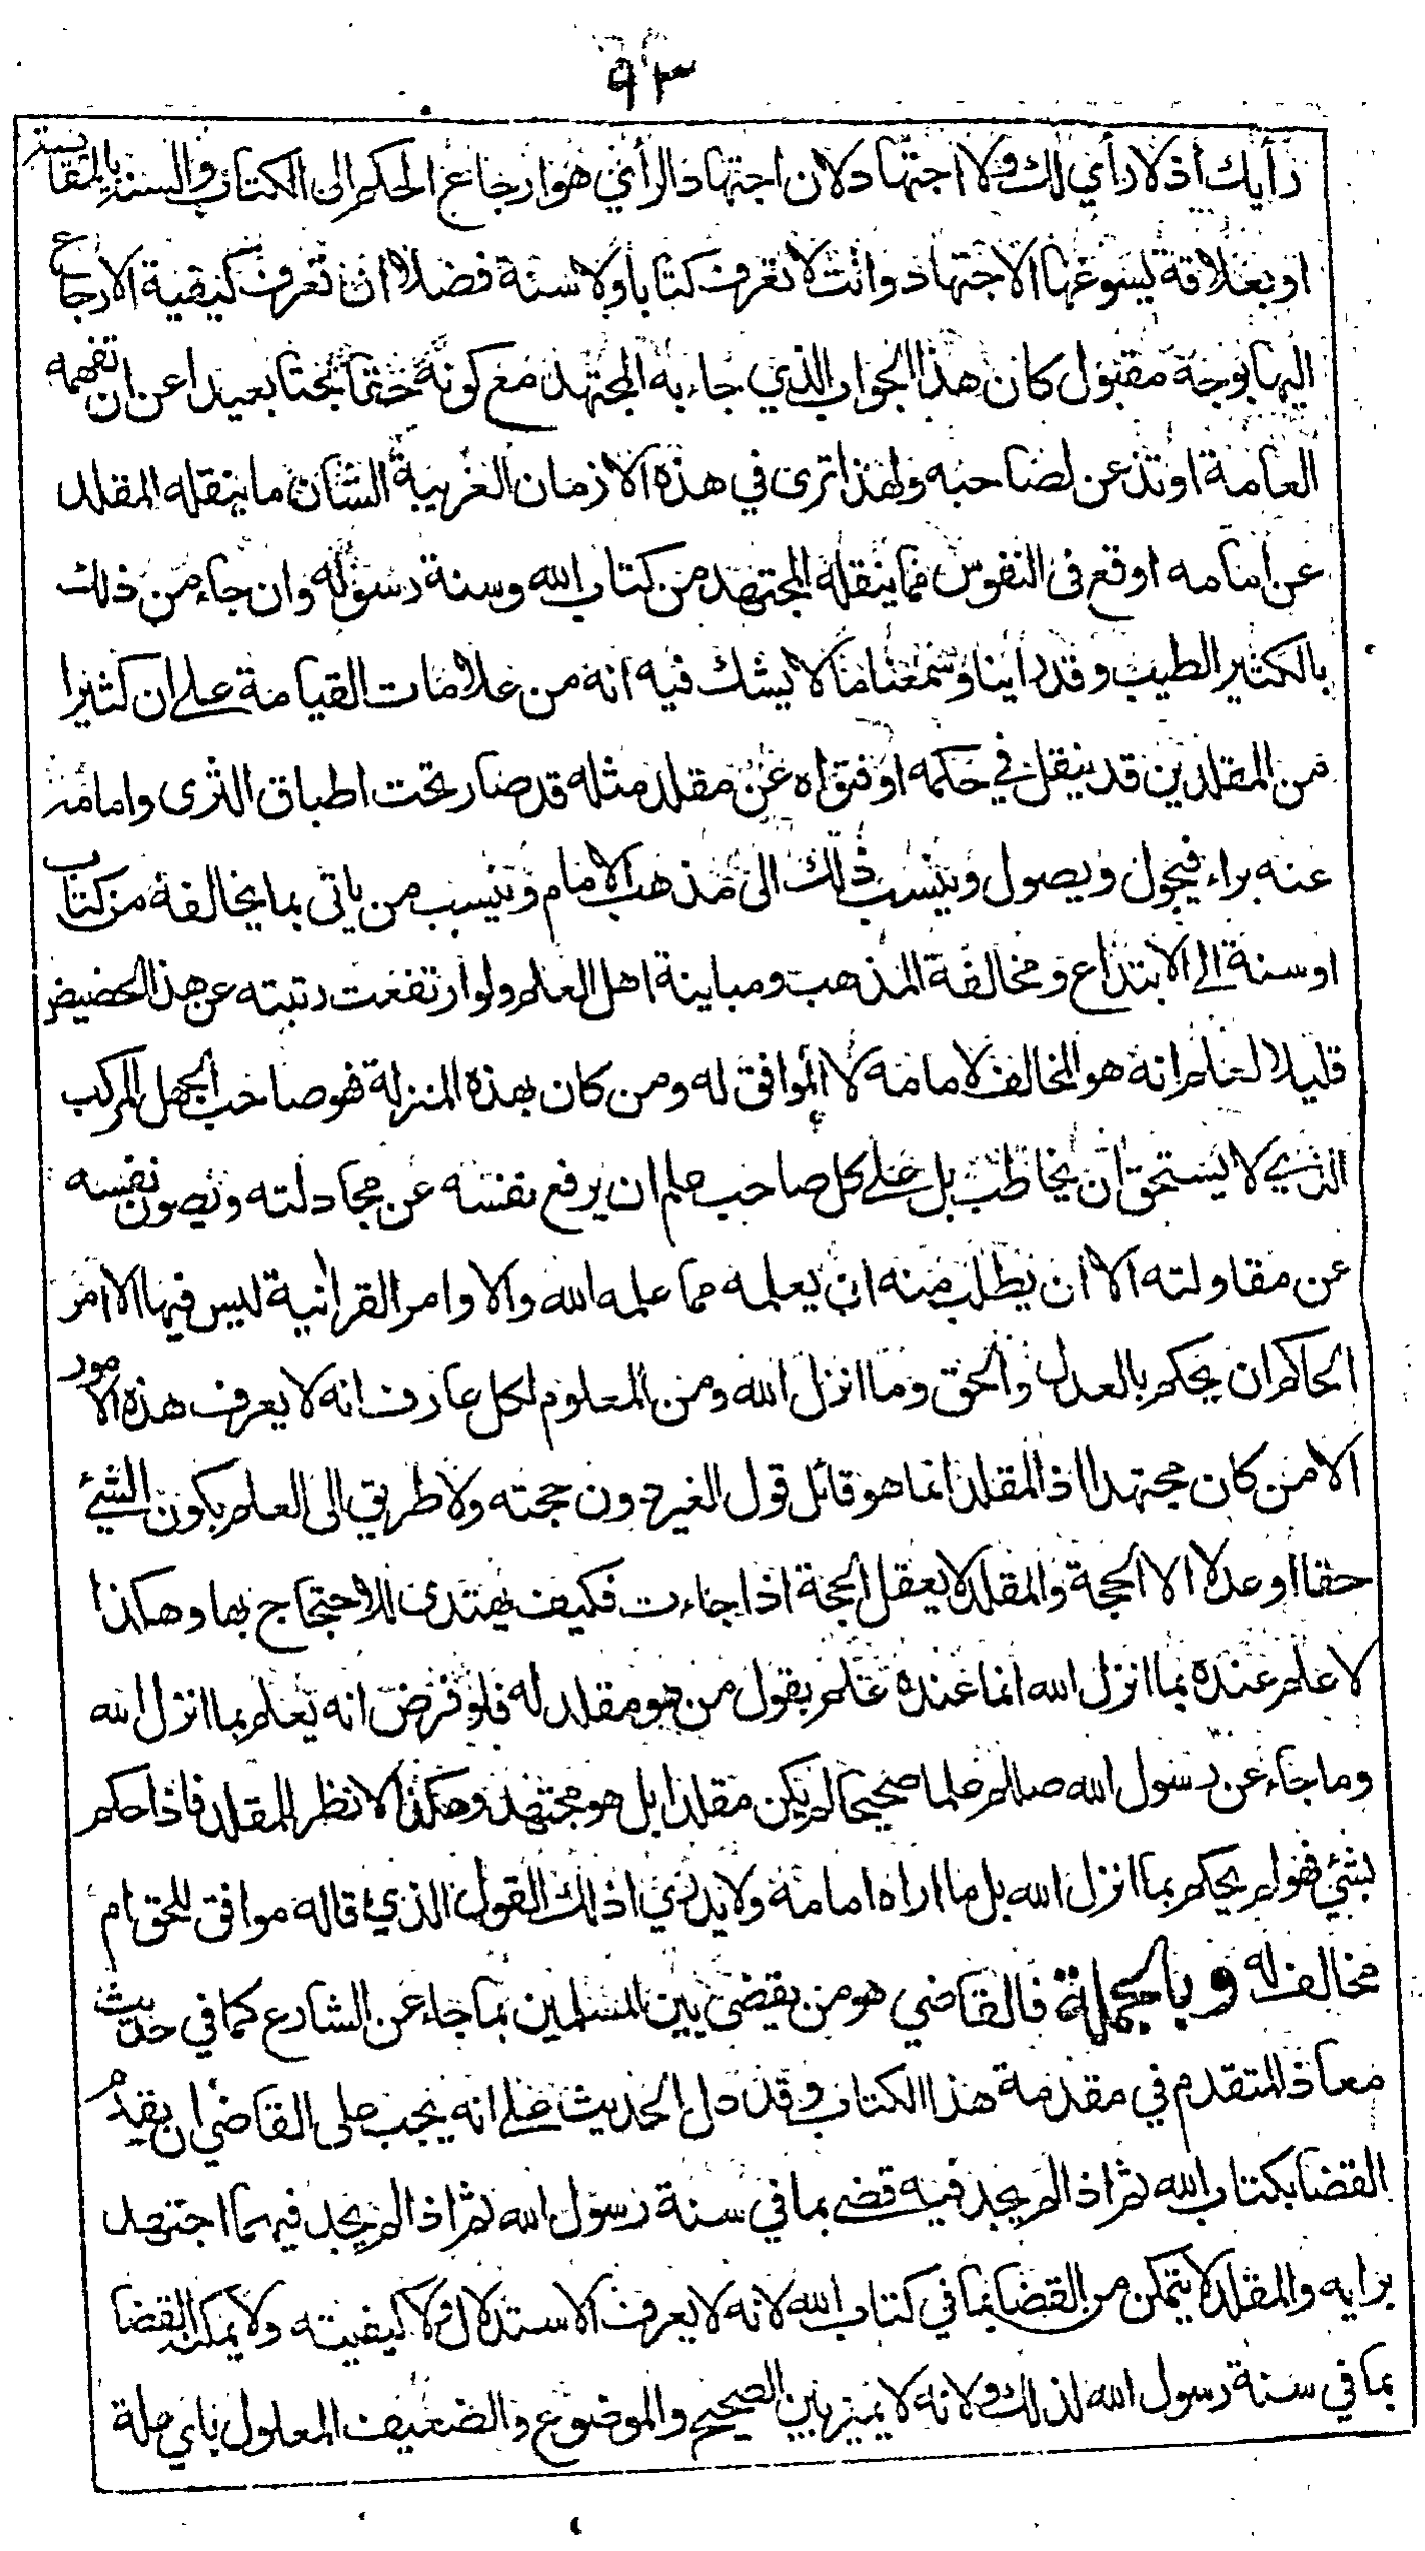 ٩٣
رأيك اذ لا رأي لك ولا اجتهاد لان اجتهاد الرأي هو ارجاع الحكم الى الكتاب والسنة بالمقايسة
او بعلاقة يسوغها الاجتهاد وانت لا تعرف كتابا ولا سنة فضلا ان تعرف كيفية الارجاع
اليها بوجه مقبول كان هذا الجواب الذي جاء به المجتهد مع كونه حقا بحتا بعيدا عن ان تفهمه
العامة او تذعن لصاحبه ولهذا ترى في هذه الازمان الغريبة الشان ما ينقله المقلد
عن امامه اوقع فى النفوس مما ينقله المجتهد من كتاب الله وسنة رسوله وان جاء من ذلك
بالكثير الطيب وقد راينا وسمعنا ما لا يشك فيه انه من علامات القيامة على ان كثيرا
من المقلدين قد ينقل في حكمه او فتواه عن مقلد مثله قد صار تحت اطباق الثرى وامامه
عنه براء فيجول ويصول وينسب ذلك الى مذهب الامام وينسب من ياتى بما يخالفه من كتاب
او سنة الى الابتداع ومخالفة المذهب ومباينة اهل العلم ولو ارتفعت رتبته عن هذا الحضيض
قليلا لعلم انه هو المخالف لامامه لا الموافق له ومن كان بهذه المنزلة فهو صاحب الجهل المركب
الذي لا يستحق ان يخاطب بل على كل صاحب علم ان يرفع نفسه عن مجادلته ويصون نفسه
عن مقاولته الا ان يطلب منه ان يعلمه مما علمه الله والاوامر القرانية ليس فيها الا امر
الحاكم ان يحكم بالعدل والحق وما انزل الله ومن المعلوم لكل عارف انه لا يعرف هذه الامور
الا من كان مجتهدا اذ المقلد انما هو قائل قول الغير دون حجته ولا طريق الى العلم بكون الشيئ
حقا او عدلا الا الحجة والمقلد لا يعقل الحجة اذا جاءت فكيف يهتدى للاحتجاج بها وهكذا
لا علم عنده بما انزل الله انما عنده علم بقول من هو مقلد له فلو فرض انه يعلم بما انزل الله
وما جاء عن رسول الله صللم علما صحيحا لم يكن مقلدا بل هو مجتهد وهكذا لا نظر للمقلد فاذا حكم
بشئي فهو لم يحكم بما انزل الله بل ما اراه امامه ولا يدري اذلك القول الذي قاله موافق للحق ام
مخالف له وبالجملة فالقاضي هو من يقضى بين المسلمين بما جاء عن الشارع كما في حديث
معاذ المتقدم في مقدمة هذا الكتاب وقد دل الحديث على انه يجب على القاضي ان يقدم
القضا بكتاب الله ثم اذا لم يجد فيه قضى بما في سنة رسول الله ثم اذا لم يجد فيهما اجتهد
برايه والمقلد لا يتمكن من القضا بما في كتاب الله لانه لا يعرف الاستدلال ولا كيفيته ولا يمكنه القضا
بما في سنة رسول الله لذلك ولانه لا يميز بين الصحيح والموضوع والضعيف المعلول باي علة